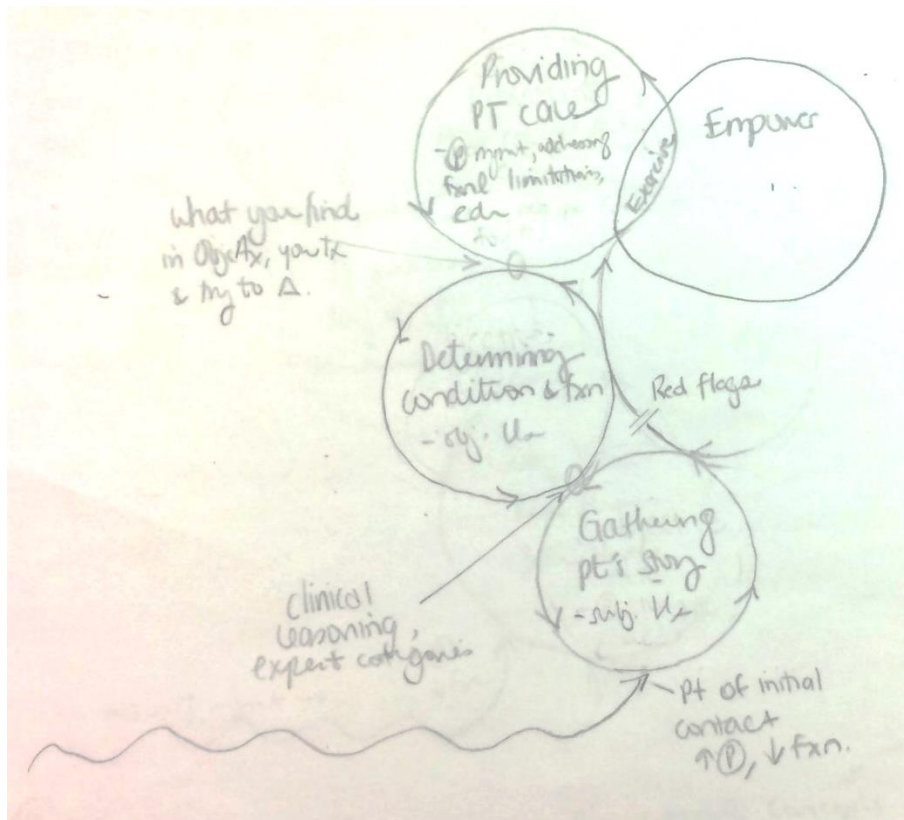 Providing
PT care
- Ⓟ mgmt, addressing
fxnl limitations,
edu
Exercise
Empower
what you find
in Obj Ax, you tx
& try to Δ.
Determining
condition & fxn
- subj. Hx
Red flags
Gathering
pt's story
- subj. Hx
clinical
reasoning,
expert categories
pt of initial
contact
↑Ⓟ, ↓fxn.